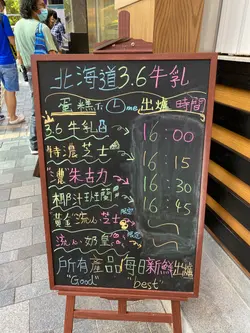 北海道3.6牛乳
蛋糕Ti L me出爐時間
3.6牛乳 16:00
特濃芝士 16:15
濃朱古力 16:30
椰汁班蘭 16:45
黃金流心芝士
流心奶皇
所有產品每日新鮮出爐
"Good" "best"